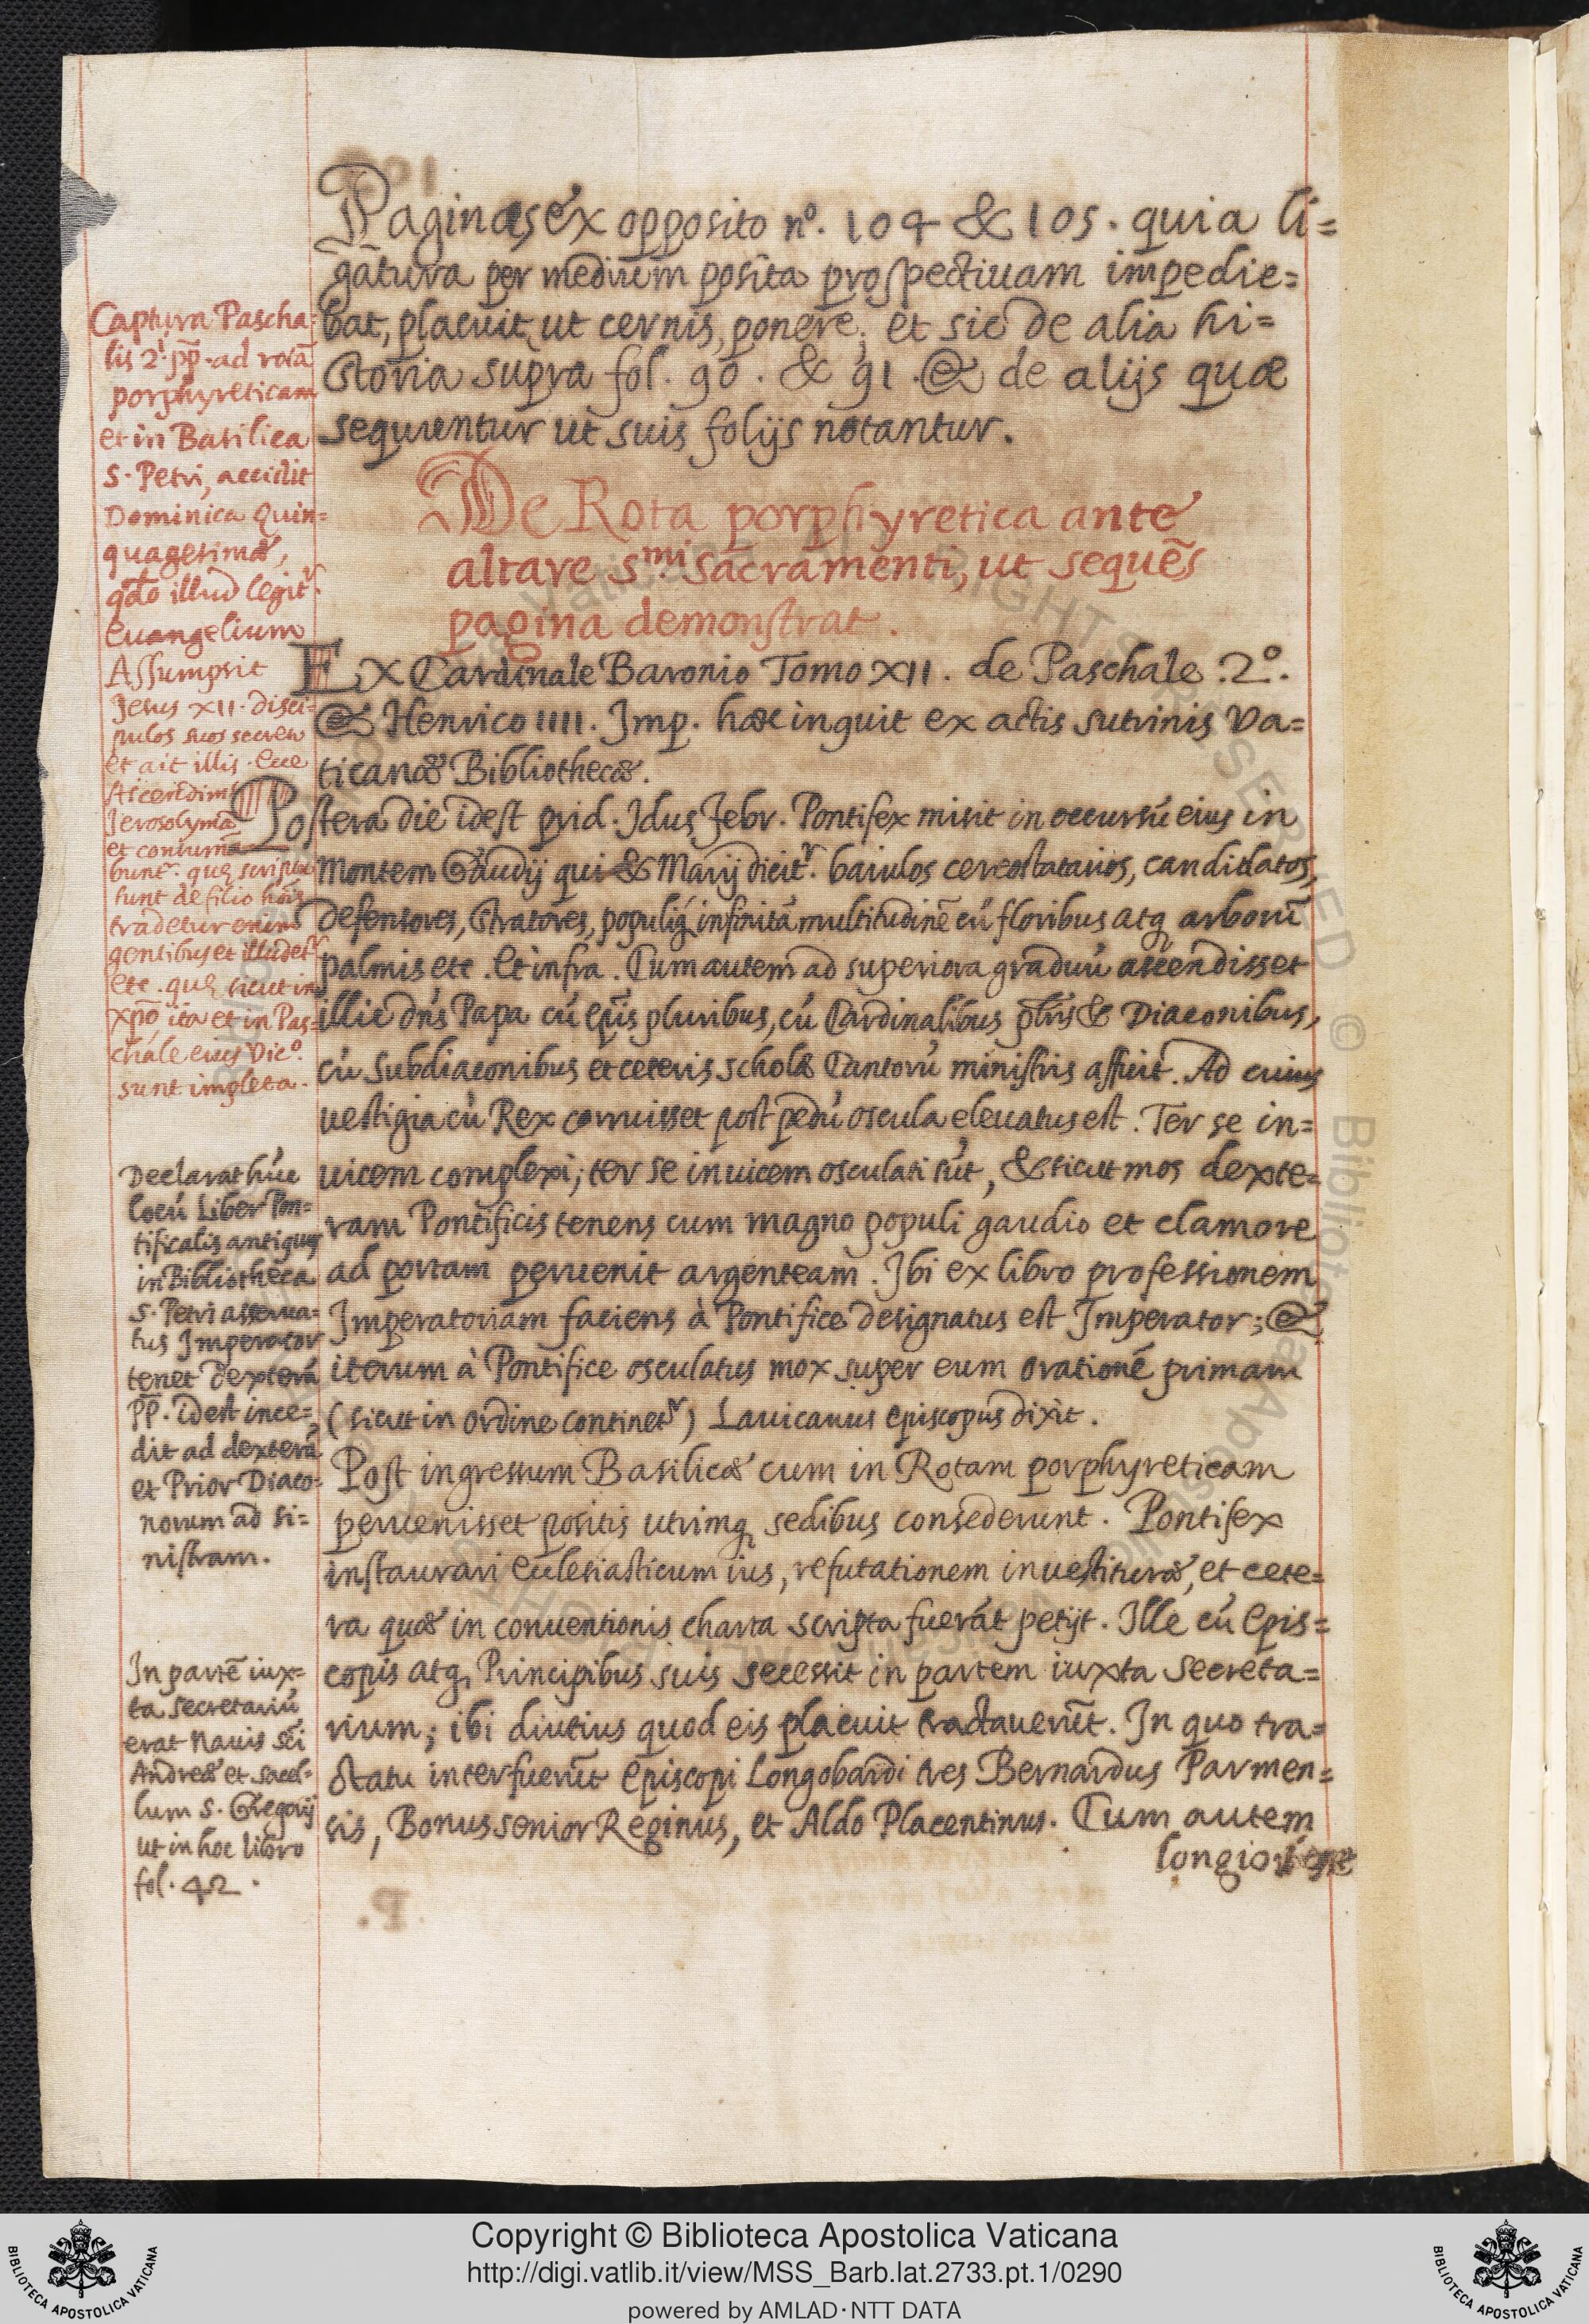 Paginas ex opposito nº. 104 & 105. quia li=
gatura per medium posita prospectiuam impedie=
bat, placuit, ut cernis, ponere; et sic de alia hi=
storia supra fol. 90. & 91. & de alijs quæ
sequuentur ut suis folijs notantur.
De Rota porphyretica ante
altare s.mi sacramenti, ut sequẽs
pagina demonstrat.
Ex Cardinale Baronio Tomo XII. de Paschale .2º.
& Henrico IIII. Imp. hæc inquit ex actis sutrinis Va=
ticanæ Bibliothecæ.
Postera die idest prid. Idus Febr. Pontifex misit in occursũ eius in
Montem Gaudij qui & Marij dicitr. baiulos cereostatarios, candidatos,
defensores, stratores, populiq; infinitã multitudinẽ cũ floribus atq; arborũ
palmis etc. Et infra. Cum autem ad superiora graduũ ascendisset
illic dñs Papa cũ Epĩs pluribus, cũ Cardinalibus pbris & Diaconibus,
cũ subdiaconibus et ceteris scholæ Cantorũ ministris affuit. Ad cuius
uestigia cũ Rex corruisset post pedũ oscula eleuatus est. Ter se in=
uicem complexi; ter se inuicem osculati sũt, & sicut mos dexte=
ram Pontificis tenens cum magno populi gaudio et clamore
ad portam peruenit argenteam. Ibi ex libro professionem
Imperatoriam faciens à Pontifice designatus est Imperator; &
iterum à Pontifice osculatus mox super eum orationẽ primam
(sicut in ordine continetr) Lauicanus episcopus dixit.
Post ingressum Basilicæ cum in Rotam porphyreticam
peruenisset positis utrimq; sedibus consederunt. Pontifex
instaurari Ecclesiasticum ius, refutationem inuestituræ, et cete=
ra quæ in conuentionis charta scripta fuerãt petijt. Ille cũ Epis=
copis atq; Principibus suis secessit in partem iuxta secreta=
rium; ibi diutius quod eis placuit tractauerũt. In quo tra=
ctatu interfuerũt Episcopi Longobardi tres Bernardus Parmen=
sis, Bonus senior Reginus, et Aldo Placentinus. Cum autem
longiori
Captura Pascha=
lis 2i. pp. ad rotã
porphyreticam
et in Basilica
S. Petri, accidit
Dominica Quin=
quagesimæ,
qdo illud legitr.
Euangelium
Assumpsit
Jesus XII. disci=
pulos suos secreto
et ait illis. Ecce
Ascendim
Jerosolymã
et consumã=
buntr. quæ scripta
sunt de filio hõis
tradetur enim
gentibus et illudetr
etc. quæ sicut in
xpõ ita et in Pas=
chale eius Vicº.
sunt impleta.
Declarat hũc
locũ Liber Pon=
tificalis antiquus
in Bibliotheca
S. Petri asserua=
tus Imperator
tenet dexterã
PP. idest ince=
dit ad dexterã
et Prior Diaco=
norum ad si=
nistram.
In partẽ iux=
ta secretariũ
erat nauis Sci
Andreæ et sacel=
lum S. Gregorij
ut in hoc libro
fol. 42.
Copyright © Biblioteca Apostolica Vaticana
http://digi.vatlib.it/view/MSS_Barb.lat.2733.pt.1/0290
powered by AMLAD·NTT DATA
BIBLIOTECA APOSTOLICA VATICANA
BIBLIOTECA APOSTOLICA VATICANA